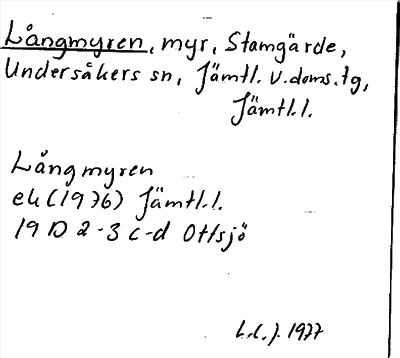 Långmyren, myr, Stamgärde,
Undersåkers sn, Jämtl. v. doms. tg,
Jämtl.l.
Långmyren
ek (1976) Jämtl.l.
19 D 2-3 c-d Ottsjö
L.C.J. 1977